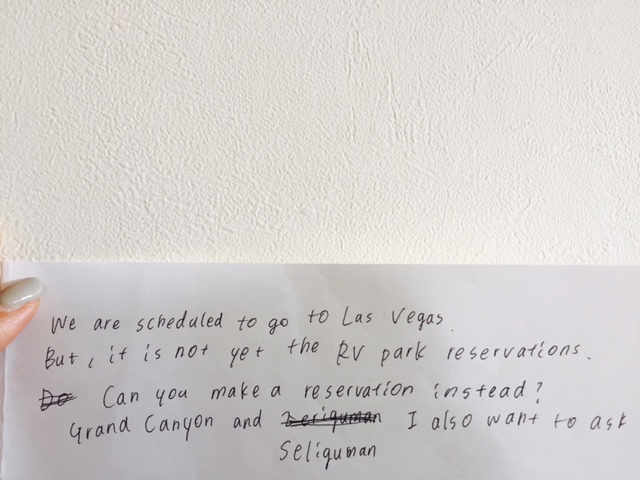 We are scheduled to go to Las Vegas.
But, it is not yet the RV park reservations.
Do Can you make a reservation instead?
Grand Canyon and Seriquman I also want to ask
Seliquman